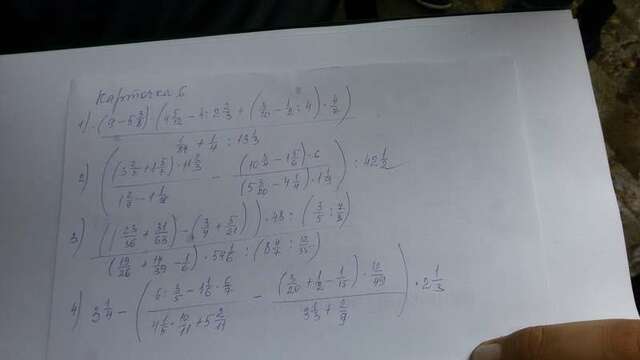 Карточка 6
1) (9 - 5 3/8) · (4 5/12 - 4 : 2 2/3 + (3/10 - 1/2 : 4) · 4/7)
1/24 + 1/4 : 13 1/3
2) ( (3 2/5 + 1 5/7) · 11 2/3 / 1 2/9 - 1 1/4 - (10 3/4 - 1 5/6) · 6 / (5 3/20 - 4 1/4) · 1 1/9 ) : 42 1/2
3) ( (1 23/36 + 31/63) - (3/4 + 5/21) ) · 48 : (3/5 : 7/3)
(19/26 + 14/39 - 1/6) · 54 1/6 : (8 4/7 : 12/35)
4) 3 1/4 - ( 6 : 3/5 - 1 1/6 · 6/7 / 4 1/5 · 10/11 + 5 2/11 - (3/20 + 1/2 - 1/15) · 12/49 / 3 1/3 + 2/9 ) · 2 1/3